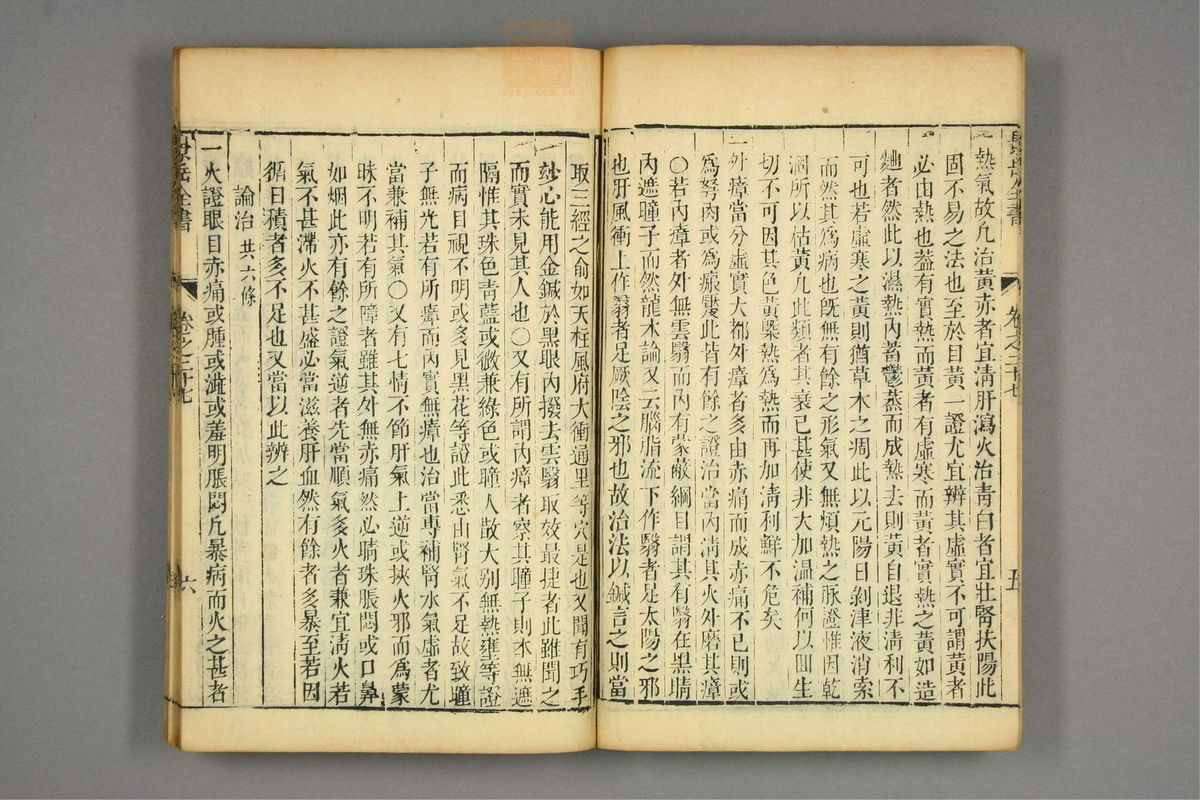 景岳全書 卷之二十七 五
熱氣故凡治黃赤者宜清肝瀉火治青白者宜壯腎扶陽此
固不易之法也至於目黃一證尤宜辨其虛實不可謂黃者
必由熱也蓋有實熱而黃者有虛寒而黃者實熱之黃如造
麯者然此以濕熱內蓄鬱蒸而成熱去則黃自退非清利不
可也若虛寒之黃則猶草木之凋此以元陽日剝津液消索
而然其為病也既無有餘之形氣又無煩熱之脉證惟因乾
涸所以枯黃凡此類者其衰已甚使非大加溫補何以回生
切不可因其色黃槩執為熱而再加清利鮮不危矣
一外瘴當分虛實大都外瘴者多由赤痛而成赤痛不已則或
為努肉或為瘢靨此皆有餘之證治當內清其火外磨其瘴
○若內瘴者外無雲翳而內有蒙蔽綱目謂其有翳在黑睛
內遮瞳子而然龍木論又云腦脂流下作翳者足太陽之邪
也肝風衝上作翳者足厥陰之邪也故治法以鍼言之則當
取三經之俞如天柱風府太衝通里等穴是也又聞有巧手
妙心能用金鍼於黑眼內撥去雲翳取效最捷者此雖聞之
而實未見其人也○又有所謂內瘴者察其瞳子則本無遮
隔惟其珠色青藍或微兼綠色或瞳人散大别無熱壅等證
而病目視不明或多見黑花等證此悉由腎氣不足故致瞳
子無光若有所瘴而內實無瘴也治當專補腎水氣虛者尤
當兼補其氣○又有七情不節肝氣上逆或挾火邪而為蒙
昧不明若有所障者雖其外無赤痛然必睛珠脹悶或口鼻
如烟此亦有餘之證氣逆者先當順氣多火者兼宜清火若
氣不甚滯火不甚盛必當滋養肝血然有餘者多暴至若因
循日積者多不足也又當以此辨之
論治共六條
一火證眼目赤痛或腫或澁或羞明脹悶凡暴病而火之甚者
景岳全書 卷之二十七 六